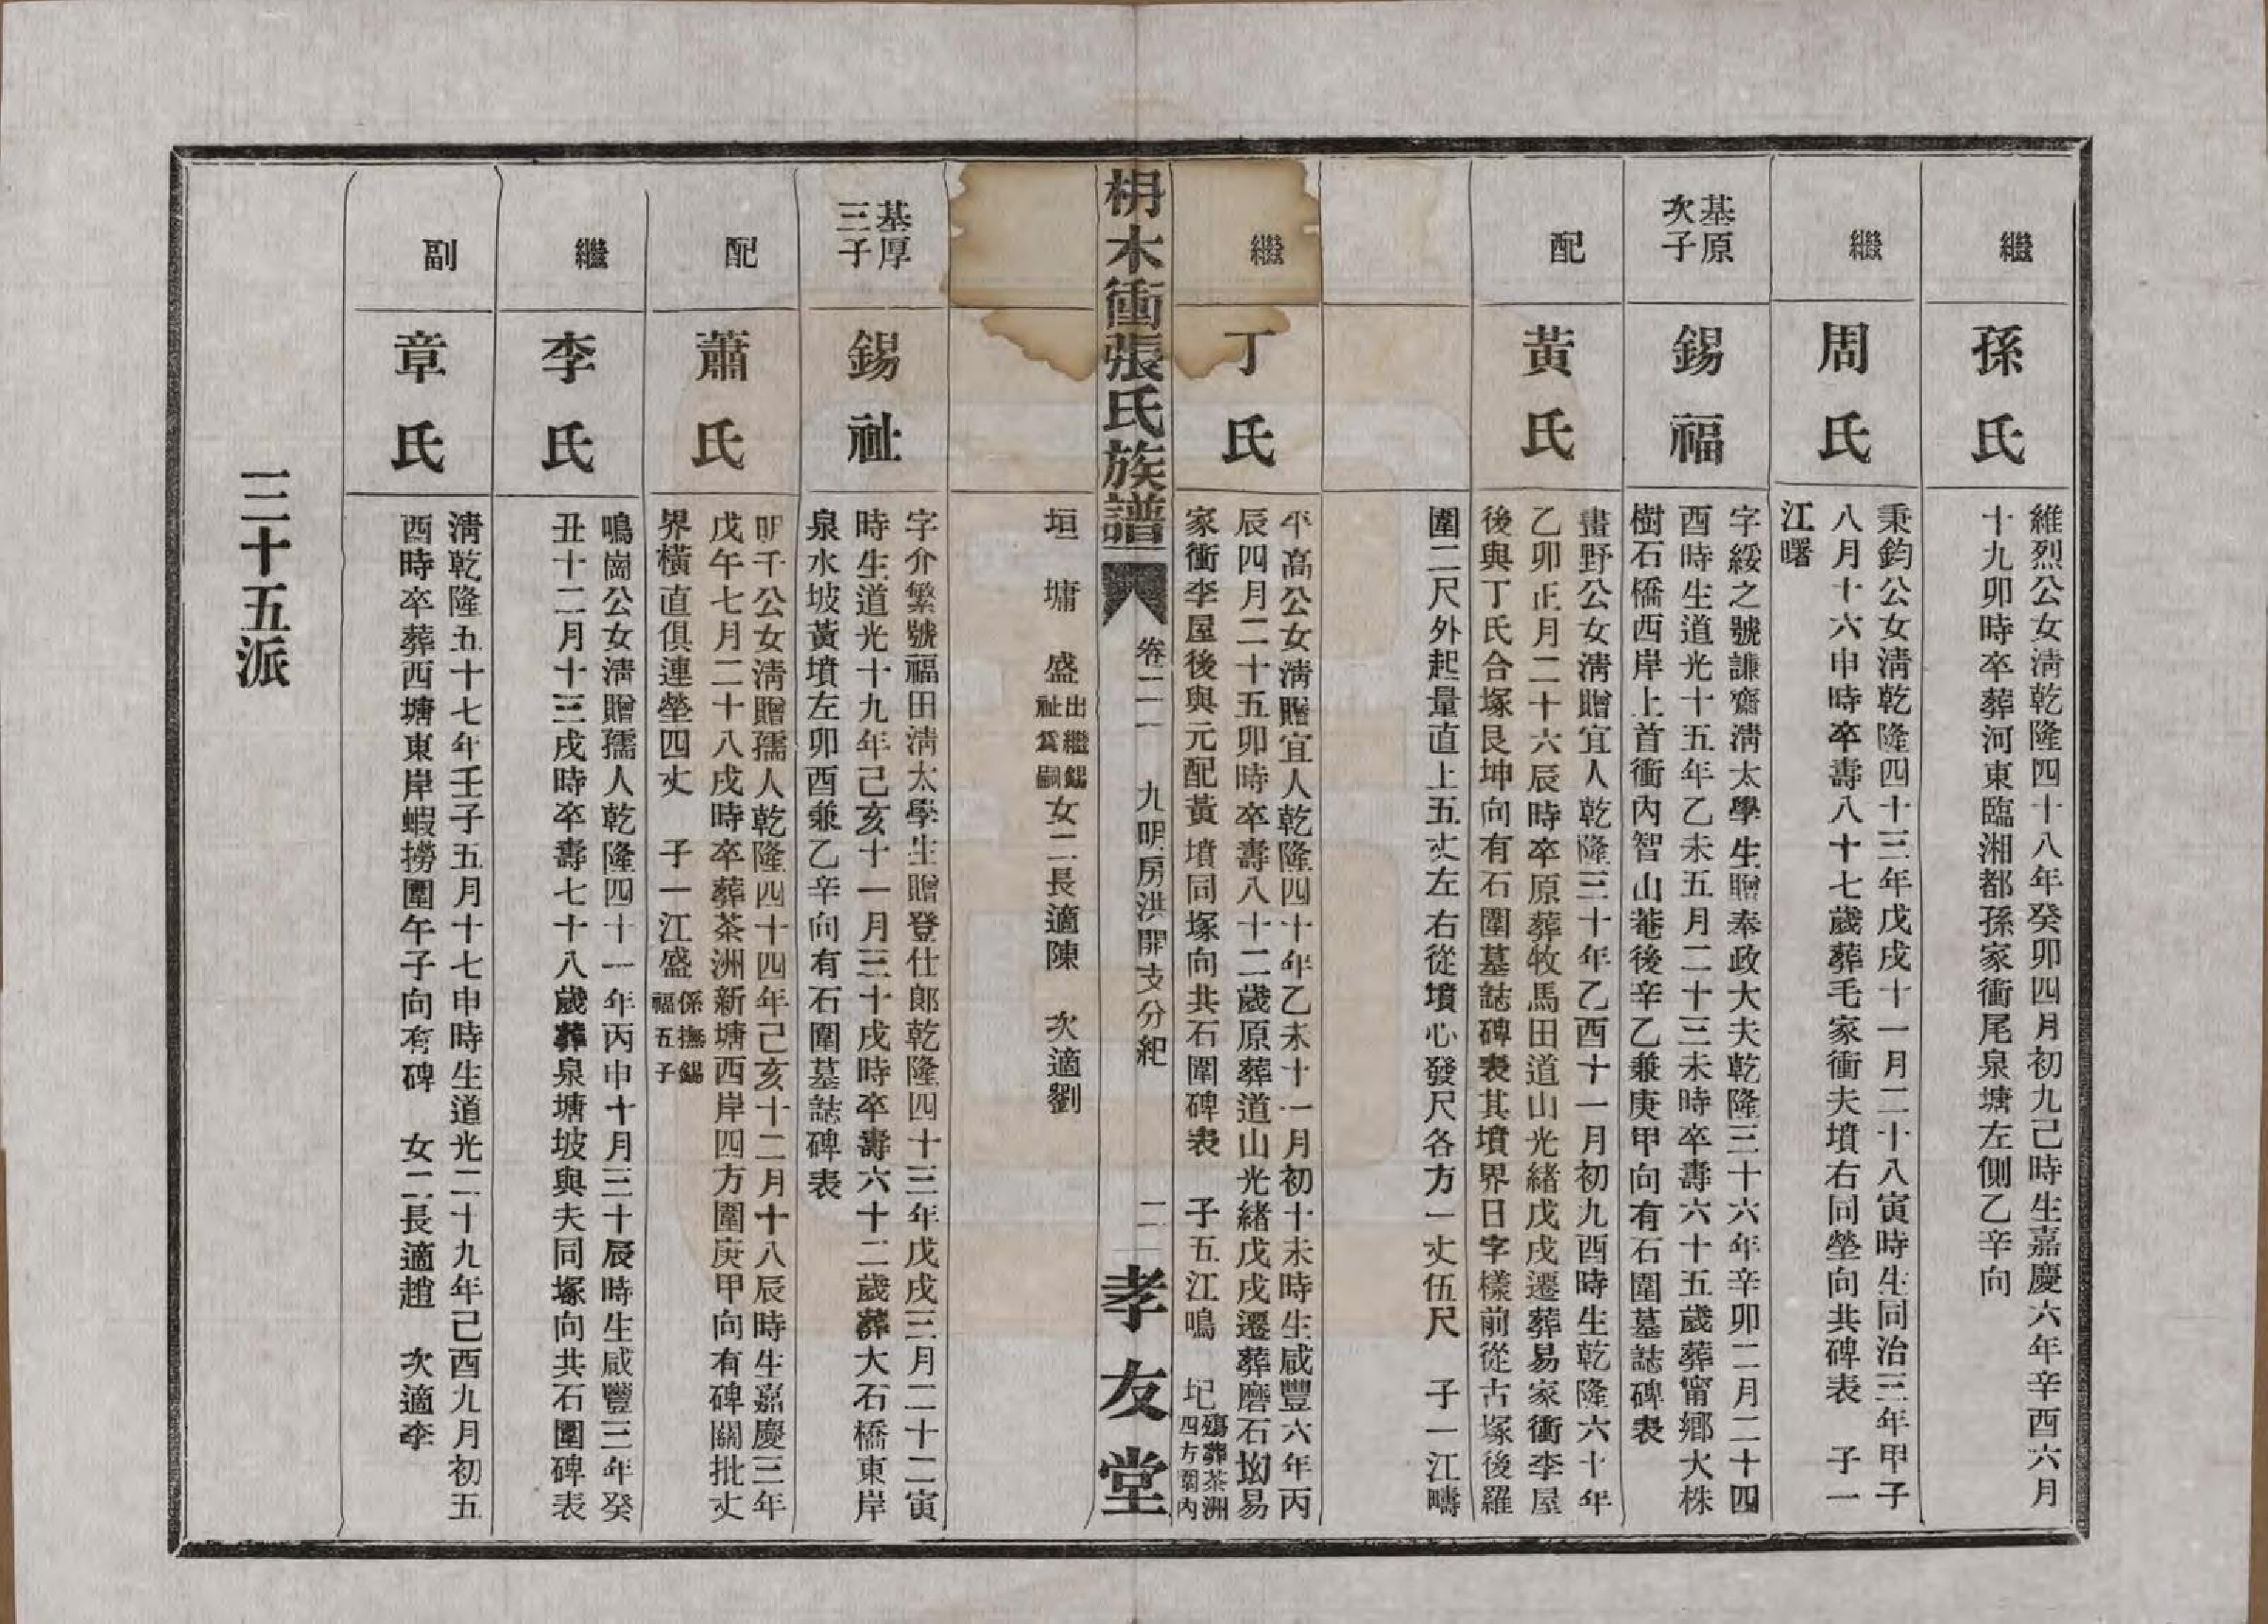 繼
孫氏
維烈公女淸乾隆四十八年癸卯四月初九己時生嘉慶六年辛酉六月
十九卯時卒葬河東臨湘都孫家衝尾泉塘左側乙辛向
繼
周氏
秉鈞公女淸乾隆四十三年戊戌十一月二十八寅時生同治三年甲子
八月十六申時卒壽八十七歲葬毛家衝夫墳右同塋向共碑表 子一
江曙
基原
次子
錫福
字綏之號謙齋淸太學生贈奉政大夫乾隆三十六年辛卯二月二十四
酉時生道光十五年乙未五月二十三未時卒壽六十五歲葬甯鄉大株
樹石橋西岸上首衝內智山菴後辛乙兼庚甲向有石圍墓誌碑表
配
黃氏
畫野公女淸贈宜人乾隆三十年乙酉十一月初九酉時生乾隆六十年
乙卯正月二十六辰時卒原葬牧馬田道山光緒戊戌遷葬易家衝李屋
後與丁氏合塚艮坤向有石圍墓誌碑表其墳界日字樣前從古塚後羅
圍二尺外起量直上五丈左右從墳心發尺各方一丈伍尺 子一江疇
繼
丁氏
平高公女淸贈宜人乾隆四十年乙未十一月初十未時生咸豐六年丙
辰四月二十五卯時卒壽八十二歲原葬道山光緒戊戌遷葬磨石坳易
家衝李屋後與元配黃墳同塚向共石圍碑表 子五江鳴 圯
殤葬茶洲
四方圍內
枬木衝張氏族譜 卷二 九明房洪開支分紀 二 孝友堂
垣 墉 盛
出繼錫
祉爲嗣
女二長適陳 次適劉
基厚
三子
錫祉
字介繁號福田淸太學生贈登仕郞乾隆四十三年戊戌三月二十二寅
時生道光十九年己亥十一月三十戌時卒壽六十二歲葬大石橋東岸
泉水坡黃墳左卯酉兼乙辛向有石圍墓誌碑表
配
蕭氏
明千公女淸贈孺人乾隆四十四年己亥十二月十八辰時生嘉慶三年
戊午七月二十八戌時卒葬茶洲新塘西岸四方圍庚甲向有碑關批丈
界橫直俱連塋四丈 子一江盛
係撫錫
福五子
繼
李氏
鳴崗公女淸贈孺人乾隆四十一年丙申十月三十辰時生咸豐三年癸
丑十二月十三戌時卒壽七十八歲葬泉塘坡與夫同塚向共石圍碑表
副
章氏
淸乾隆五十七年壬子五月十七申時生道光二十九年己酉九月初五
酉時卒葬西塘東岸蝦撈圍午子向有碑 女二長適趙 次適李
三十五派